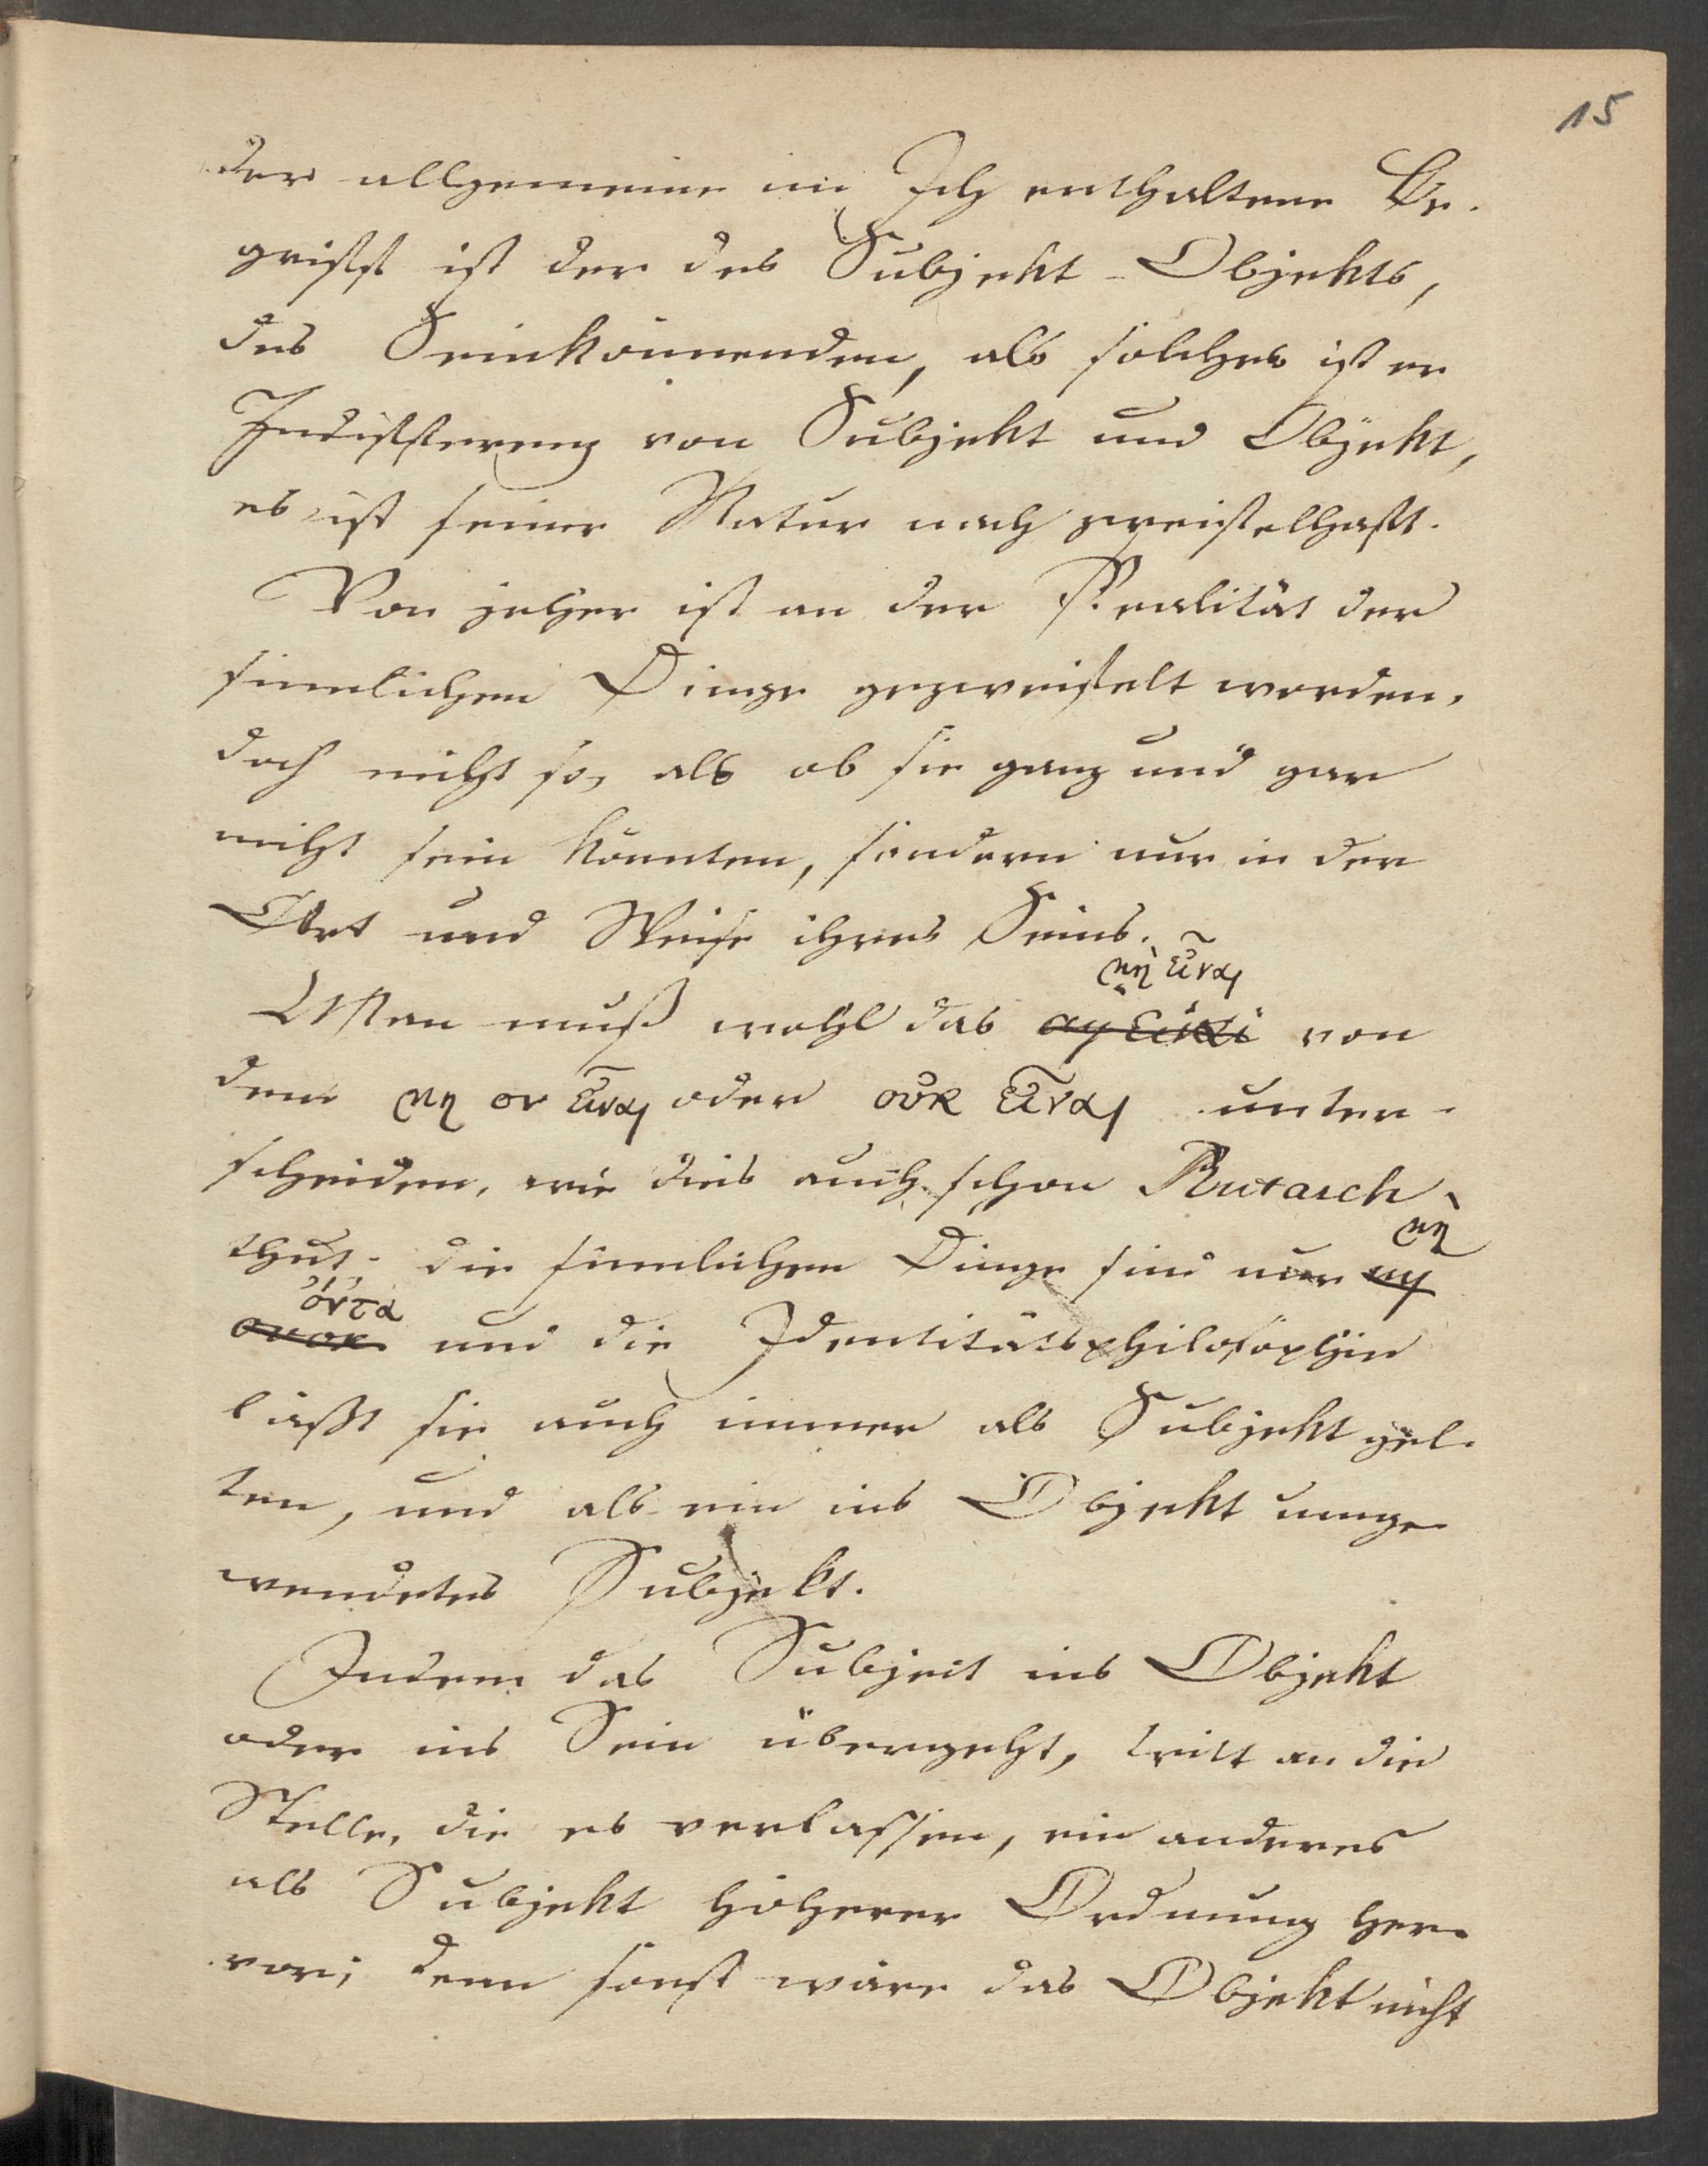 15
der allgemeine im Ich enthaltene Be-
griff ist der des Subjekt-Objekts,
des Seinkönnenden, als solches ist er
Indifferenz von Subjekt und Objekt,
es ist seiner Natur nach zweifelhaft.
Von jeher ist an der Realität der
sinnlichen Dinge gezweifelt worden,
doch nicht so, als ob sie ganz und gar
nicht sein könnten, sondern nur in der
Art und Weise ihres Seins.
μὴ εἶναι
Man muß wohl das von
dem μη ον εἶναι oder οὐκ εἶναι unter-
scheiden, wie dies auch schon Plutarch
μὴ
thut. die sinnlichen Dinge sind nur
ὄντα
und die Identitätsphilosophie
läßt sie auch immer als Subjekt gel-
ten, und als ein ins Objekt umge-
wendetes Subjekt.
Indem das Subjeit ins Objekt
oder ins Sein übergeht, tritt an die
Stelle, die es verlassen, ein anderes
als Subjekt höherer Ordnung her-
vor; denn sonst wäre das Objekt nicht